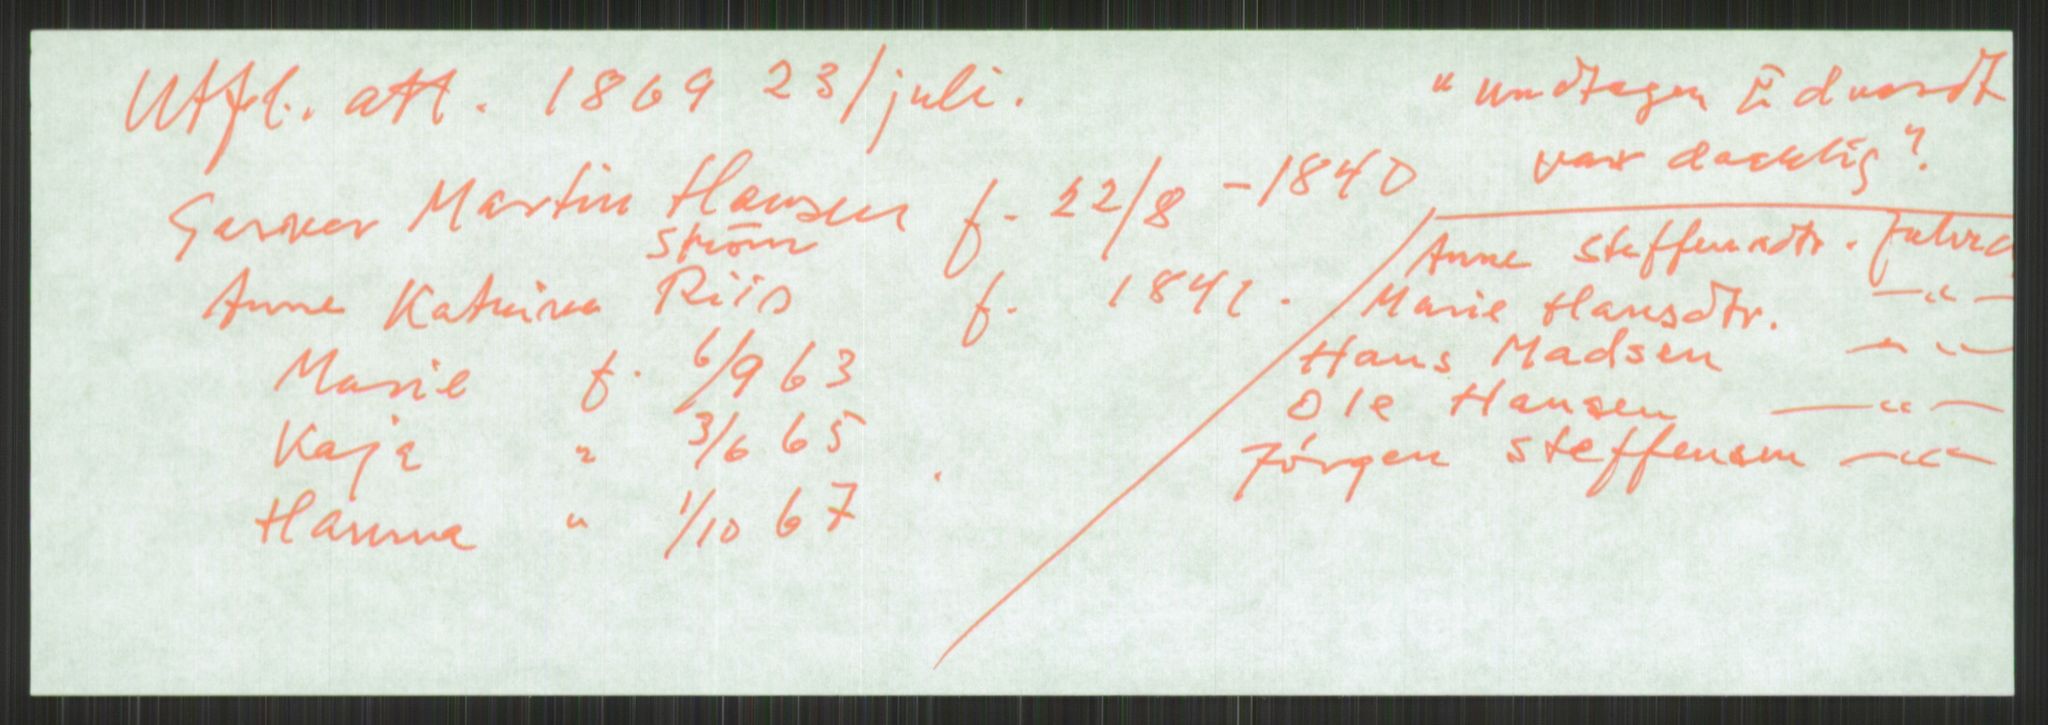 Utfl. att. 1869 23/juli.
Garver Martin Hansen f. 22/8 - 1840
Ström
Anne Katrina Riis f. 1841.
Marie f. 6/9 63
Kaja " 3/6 65
Hanna " 1/10 67
"undtagen Edvardt
var dachlig".
Anne Steffensdtr.
Marie Hansdtr. —"—
Hans Madsen —"—
Ole Hansen —"—
Jörgen Steffensen —"—